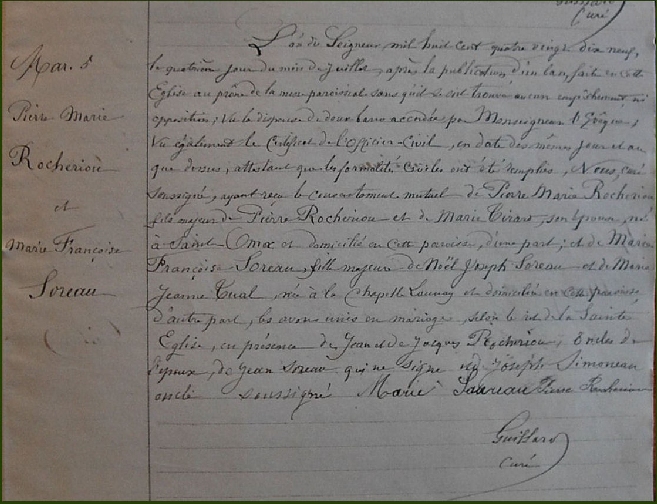 Curé
Mar. 5
Pierre Marie
Rocheriou
et
Marie Françoise
Soreau
L'an du Seigneur mil huit cent quatre vingt dix neuf,
le quatrième jour du mois de Juillet, après la publication d'un ban faite en cette
Eglise au prône de la messe paroissiale sans qu'il se soit trouvé aucun empêchement ni
opposition; Vu la dispense de deux bans accordée par Monseigneur l'Evêque;
Vu également le Certificat de l'Officier Civil, en date des mêmes jour et an
que dessus, attestant que les formalités Civiles ont été remplies, Nous, curé
soussigné, ayant reçu le consentement mutuel de Pierre Marie Rocheriou
fils majeur de Pierre Rocheriou et de Marie Girard, son épouse, né
à Saint Omer et domicilié en cette paroisse, d'une part; et de Marie
Françoise Soreau, fille majeure de Noël Joseph Soreau et de Marie
Jeanne Tual, née à la Chapelle Launay et domiciliée en cette paroisse,
d'autre part, les avons unis en mariage, selon le rit de la Sainte
Eglise, en présence de Jean et de Jacques Rocheriou, oncles de
l'époux, de Jean Soreau, qui ne signe et Joseph Simoneau
oncle soussigné Marie Saureau Pierre Rocheriou
Guissard
curé